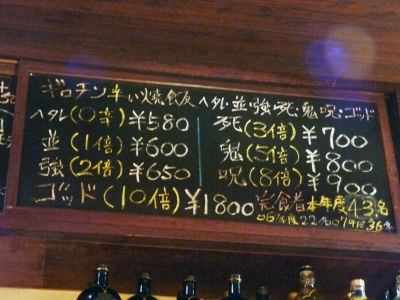 ギロチン辛い焼飯 ヘタレ・並・強・死・鬼・呪・ゴッド
ヘタレ(0辛)¥580
並(1倍)¥600
強(2倍)¥650
ゴッド(10倍)¥1800
死(3倍)¥700
鬼(5倍)¥800
呪(8倍)¥900
完食者 本年度43名
06年度22名 07年度36名